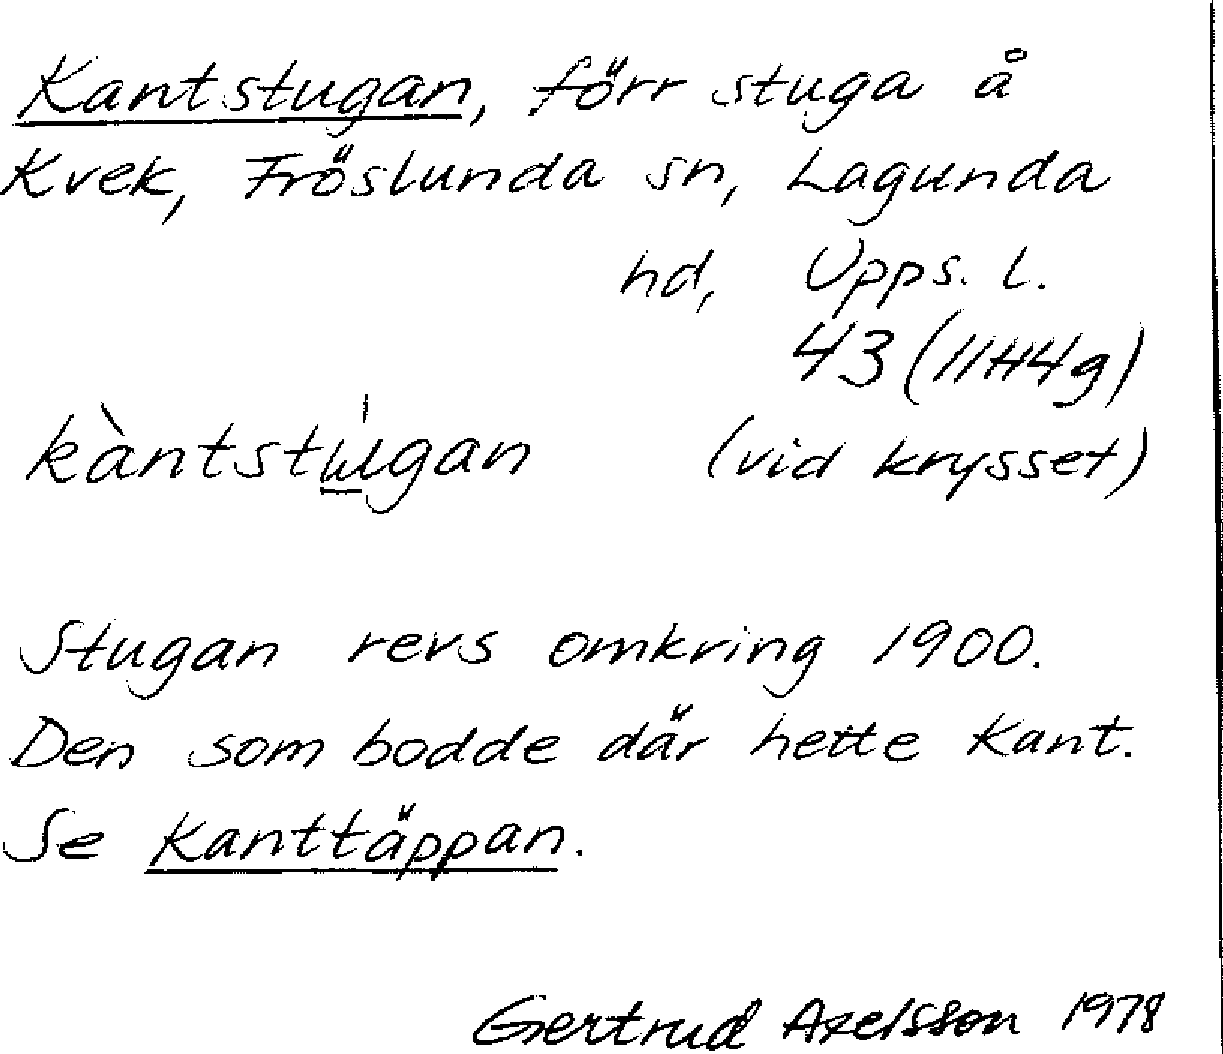 Kantstugan, förr stuga å
Kvek, Fröslunda sn, Lagunda
hd, Upps. l.
43 (11H4g)
kàntstɯ̲́gan (vid krysset)
Stugan revs omkring 1900.
Den som bodde där hette Kant.
Se Kanttäppan.
Gertrud Axelsson 1978